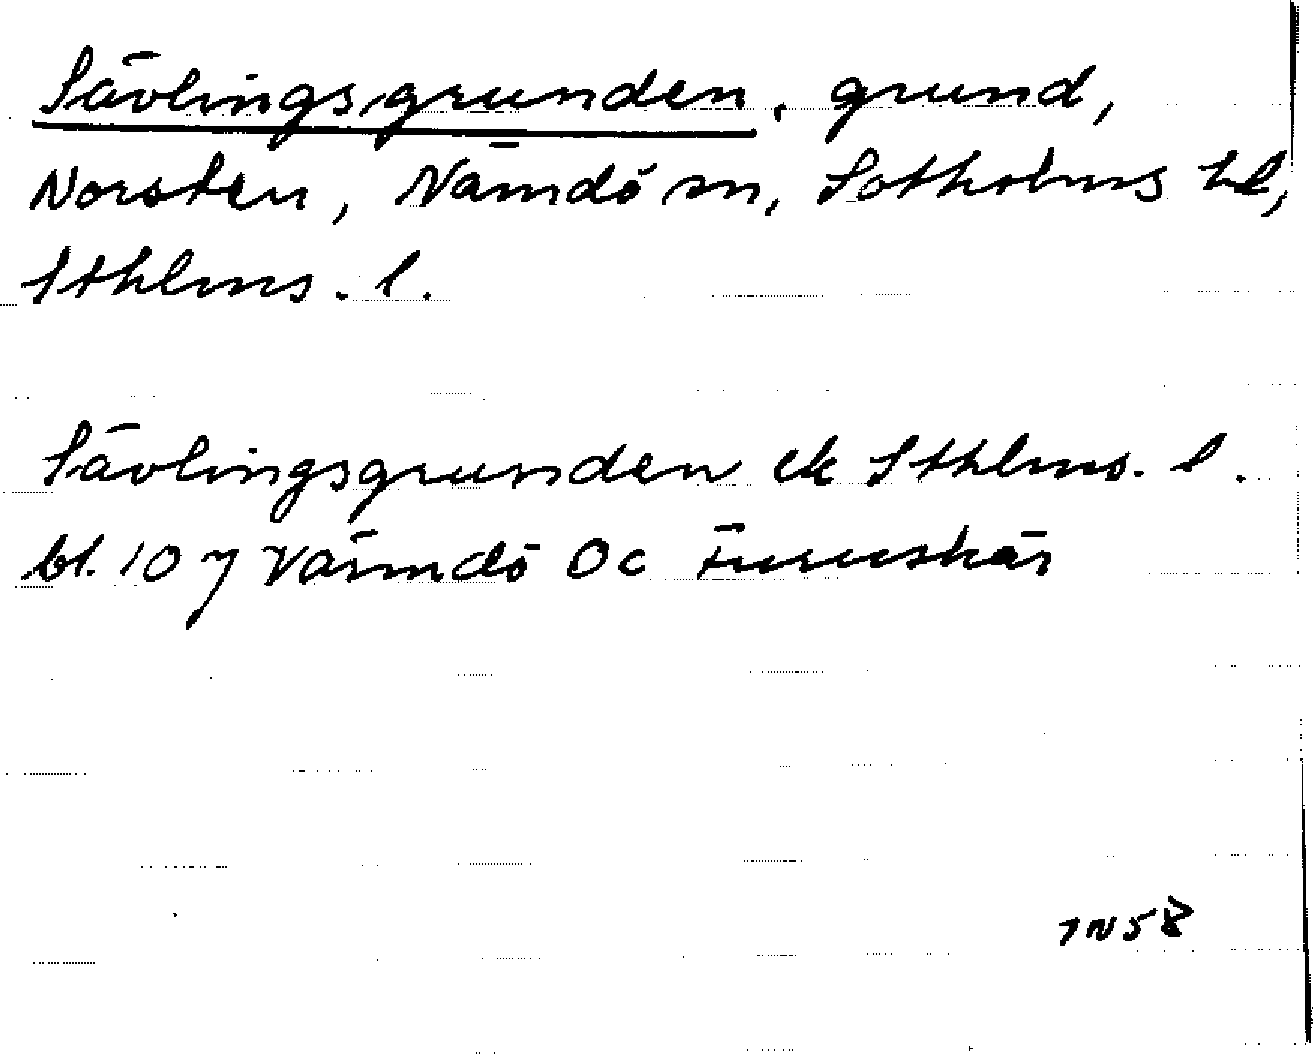 Sävlingsgrunden, grund,
Norsten, Nämdö sn, Sotholms hd,
Sthlms. l.
Sävlingsgrunden ek Sthlms. l.
bl. 107 Värmdö Oc Furuskär